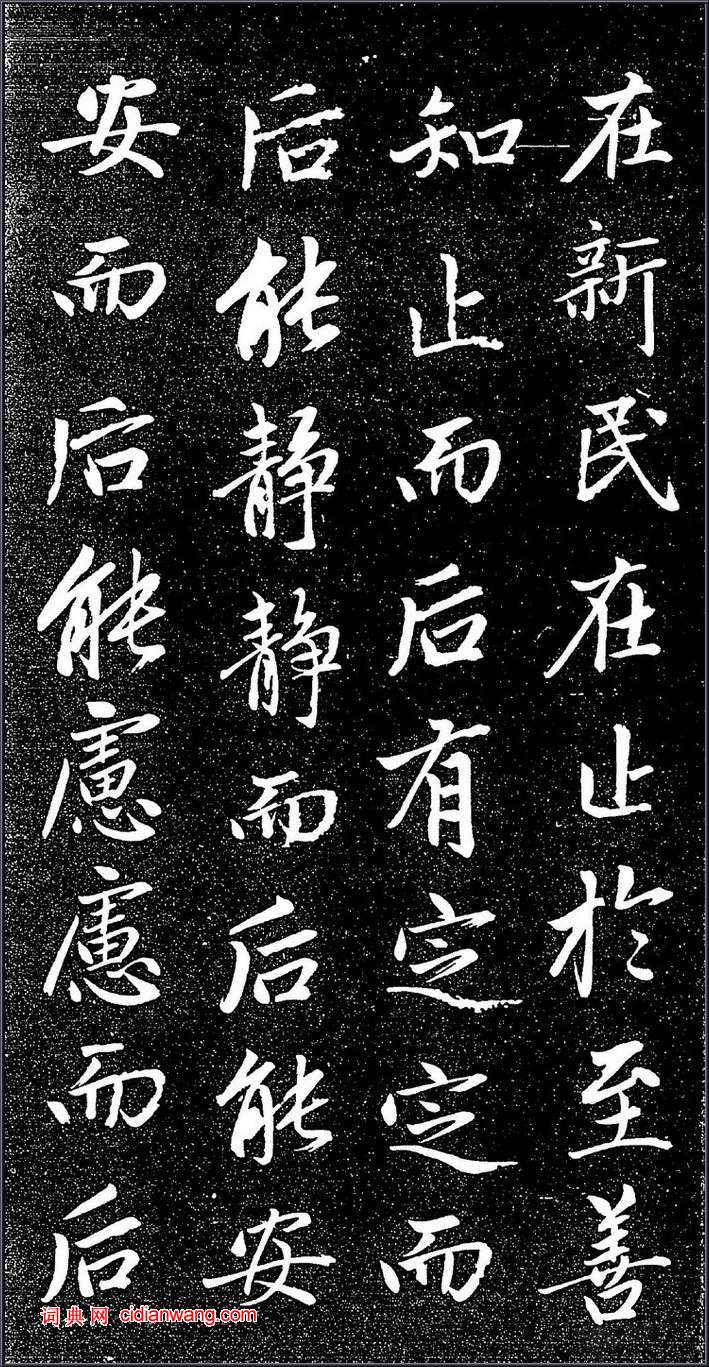 在新民在止於至善
知止而后有定定而
后能静静而后能安
安而后能慮慮而后
词典网 cidianwang.com